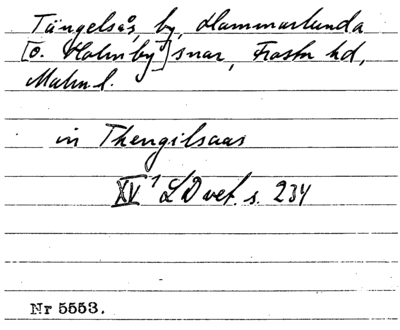 Tängelsås, by, Hammarlunda
[o. Holmby] snar, Frosta hd,
Malm l.
in Thengilsaas
XV¹ LDvet. s. 234
Nr 5553.